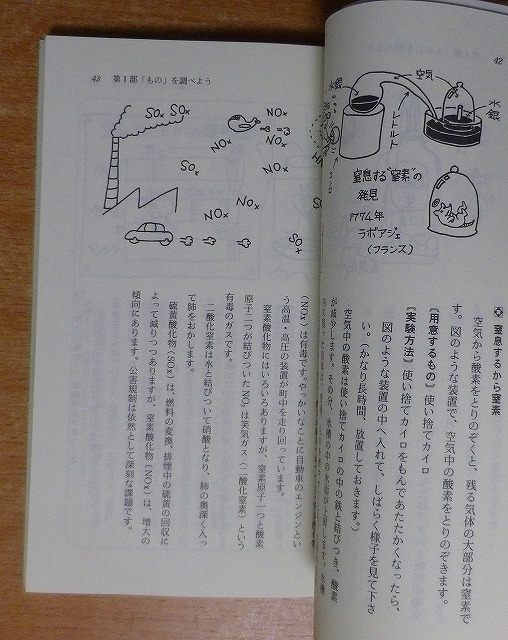 42
水銀
空気
水銀
レトルト
窒息する"窒素"の
発見
1774年
ラボアジェ
(フランス)
窒息するから窒素
空気から酸素をとりのぞくと、残る気体の大部分は窒素で
す。図のような装置で、空気中の酸素をとりのぞきます。
〔用意するもの〕使い捨てカイロ
〔実験方法〕使い捨てカイロをもんであたたかくなったら、
図のような装置の中へ入れて、しばらく様子を見て下さ
い。(かなり長時間、放置しておきます。)
空気中の酸素は使い捨てカイロの中の鉄と結びつき、酸素
が減少します。その分、水槽の中の水面が上昇します。
43 第1部「もの」を調べよう
SOx SOx
NOx
NOx
NOx
SOx
NOx
NOx
NOx
SOx
(NOx)は有毒です。やっかいなことに自動車のエンジンとい
う高温・高圧の装置が町中を走り回っています。
窒素酸化物にはいろいろありますが、窒素原子一つと酸素
原子二つが結びついたNO₂は笑気ガス(二酸化窒素)という
有毒のガスです。
二酸化窒素は水と結びついて硝酸となり、肺の奥深く入っ
て肺をおかします。
硫黄酸化物(SOx)は、燃料の変換、排煙中の硫黄の回収に
よって減りつつありますが、窒素酸化物(NOx)は、増大の
傾向にあります。公害規制は依然として深刻な課題です。